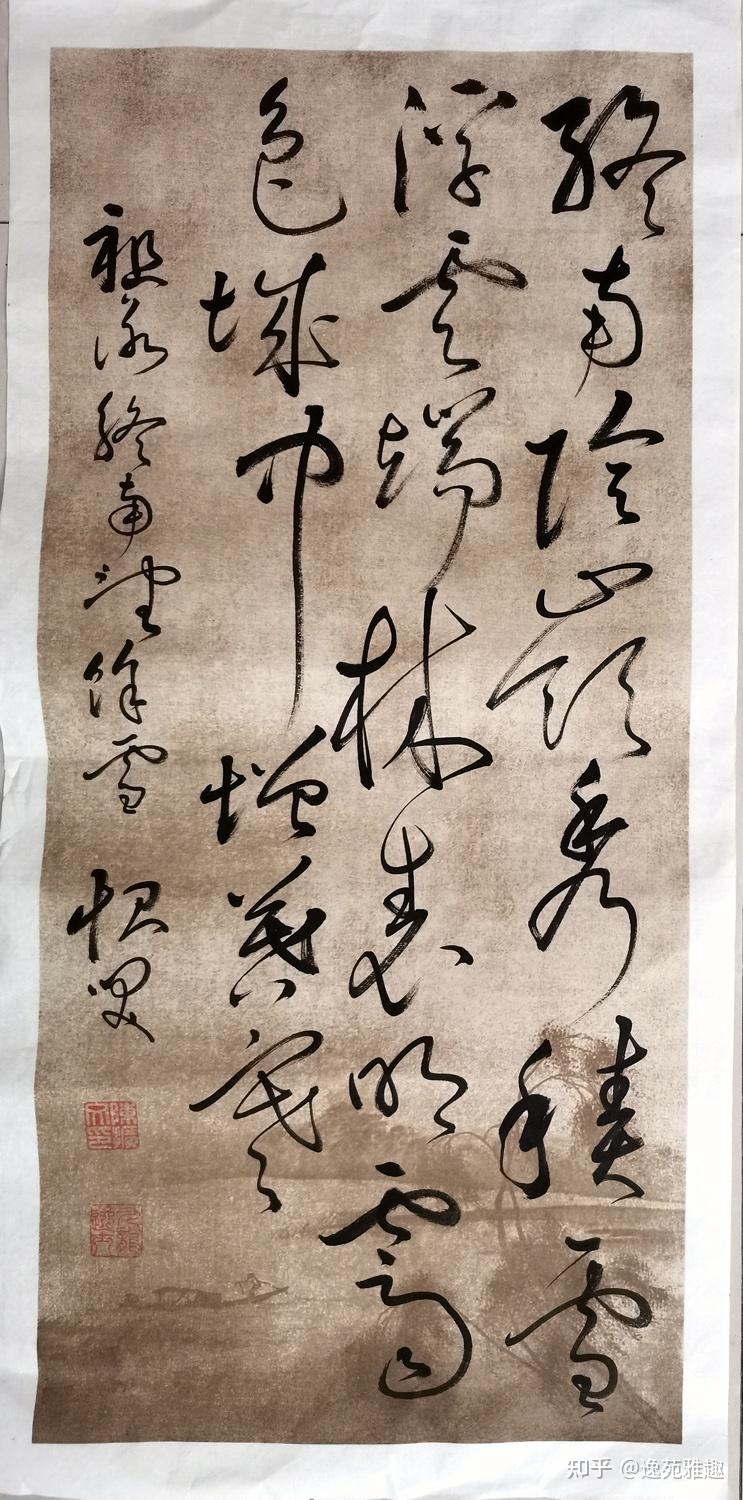 终南阴岭秀积雪
浮云端林表明霁
色城中增暮寒
祖咏终南望余雪
知乎 @逸苑雅趣